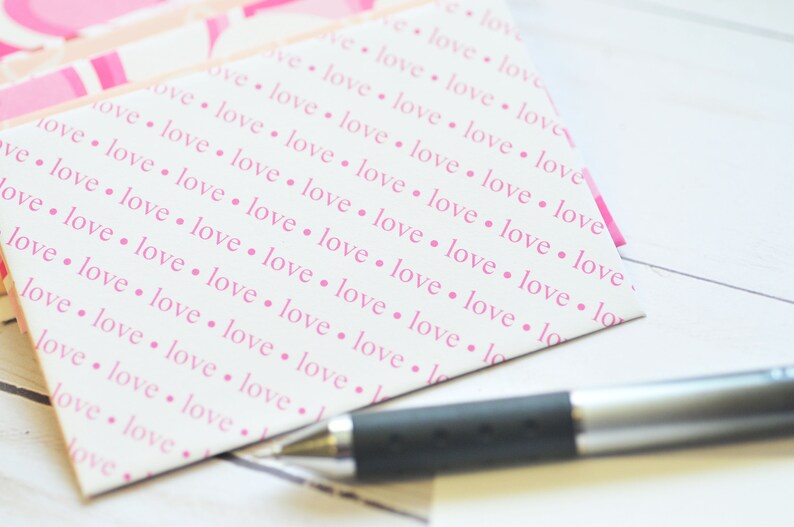 love
love • love
love • love • love
love • love • love • love
love • love • love • love • love
love • love • love • love • love • love
love • love • love • love • love • love • love
love • love • love • love • love • love • love • love
love • love • love • love • love • love • love • love
love • love • love • love • love • love • love • love
love • love • love • love • love • love • love
love • love • love • love • love • love
love • love • love • love • love
love • love • love • love
love • love • love
love • love
love